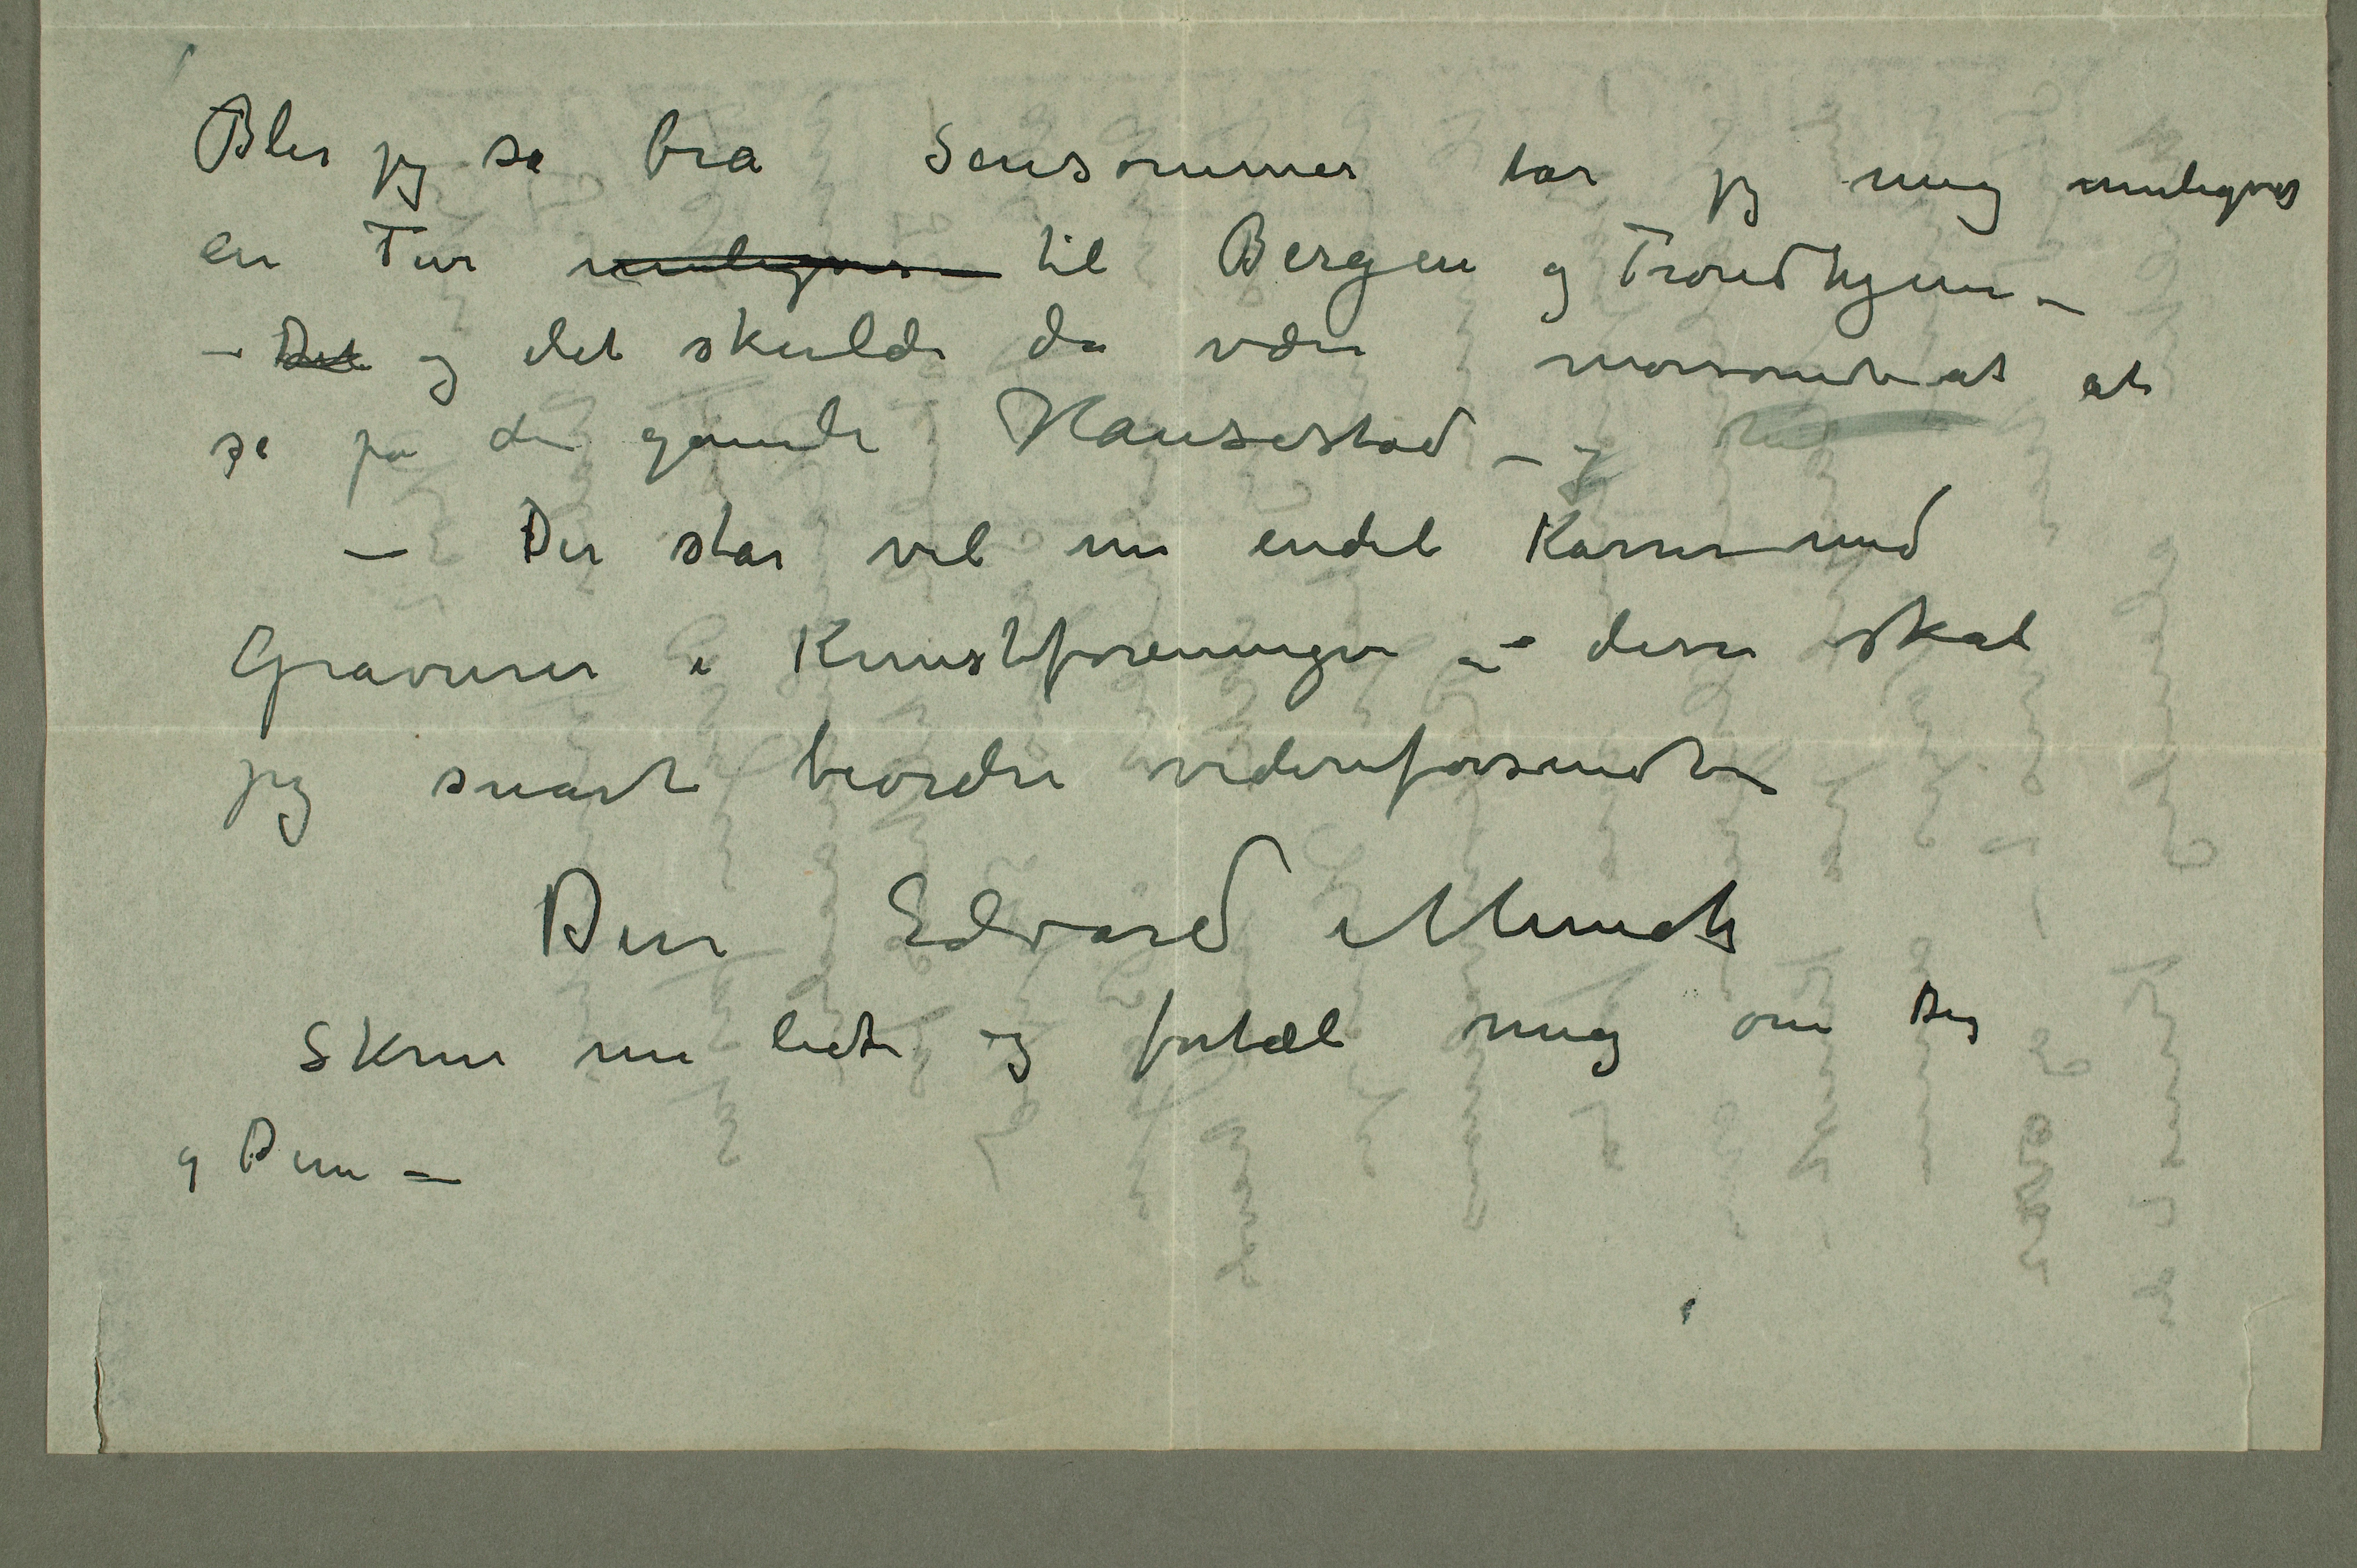 Blir jeg så bra Sensommer tar jeg mig muligvis
en Tur muligvis – til Bergen og Trondhjem –
– Det og det skulde da være morsomt at at
se på den gamle Hansestad – og
– Der står vel nu endel Kasser med
Gravurer i Kunstforeningen – disse skal
jeg snart beordre videreforsendt
Din Edvard Munch
Skriv nu lidt og fortæl mig om Dig
og Dine –